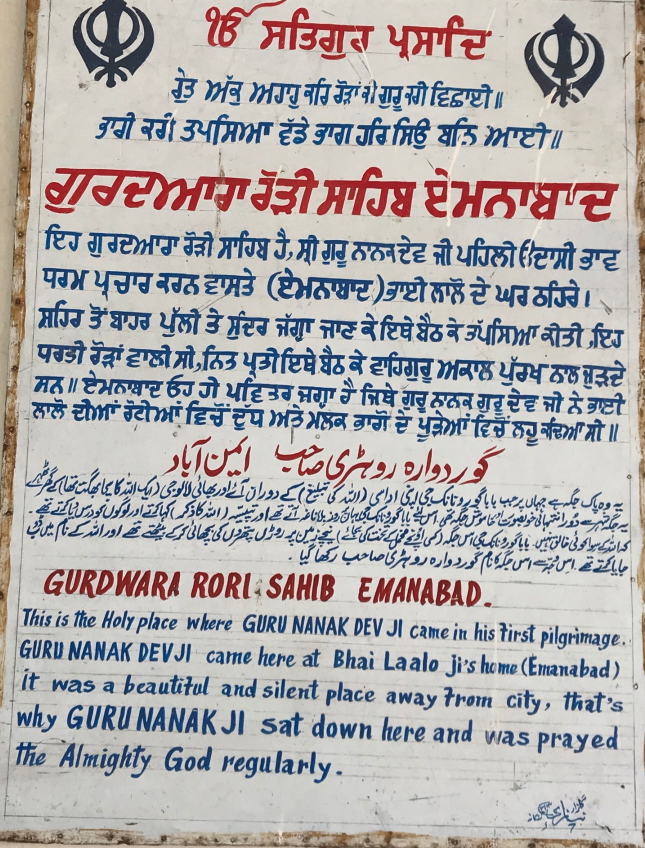 ੴ ਸਤਿਗੁਰ ਪ੍ਰਸਾਦਿ
ਰੇਤ ਅੱਕੁ ਅਹਾਰੁ ਕਰਿ ਰੋੜਾਂ ਕੀ ਗੁਰੂ ਕਰੀ ਵਿਛਾਈ॥
ਭਾਰੀ ਕਰੀ ਤਪਸਿਆ ਵੱਡੇ ਭਾਗ ਹਰਿ ਸਿਉ ਬਨਿ ਆਈ॥
ਗੁਰਦੁਆਰਾ ਰੋੜੀ ਸਾਹਿਬ ਏਮਨਾਬਾਦ
ਇਹ ਗੁਰਦੁਆਰਾ ਰੋੜੀ ਸਾਹਿਬ ਹੈ, ਸ਼੍ਰੀ ਗੁਰੂ ਨਾਨਕ ਦੇਵ ਜੀ ਪਹਿਲੀ ਓਦਾਸੀ ਭਾਵ
ਧਰਮ ਪ੍ਰਚਾਰ ਕਰਨ ਵਾਸਤੇ (ਏਮਨਾਬਾਦ) ਭਾਈ ਲਾਲੋ ਦੇ ਘਰ ਠਹਿਰੇ।
ਸ਼ਹਿਰ ਤੋਂ ਬਾਹਰ ਪੁੱਲੀ ਤੇ ਸੁੰਦਰ ਜੱਗ੍ਹਾ ਜਾਣ ਕੇ ਇਥੇ ਬੈਠ ਕੇ ਤੱਪਸਿਆ ਕੀਤੀ, ਇਹ
ਧਰਤੀ ਰੋੜਾਂ ਵਾਲੀ ਸੀ, ਨਿਤ ਪ੍ਰਤੀ ਇਥੇ ਬੈਠ ਕੇ ਵਾਹਿਗੁਰੂ ਅਕਾਲ ਪੁੱਰਖ ਨਾਲ ਜੁੜਦੇ
ਸਨ॥ ਏਮਨਾਬਾਦ ਓਹ ਹੀ ਪਵਿਤਰ ਜਗ੍ਹਾ ਹੈ ਜਿਥੇ ਗੁਰੂ ਨਾਨਕ ਗੁਰੂ ਦੇਵ ਜੀ ਨੇ ਭਾਈ
ਲਾਲੋ ਦੀਆਂ ਰੋਟੀਆਂ ਵਿਚੋਂ ਦੁੱਧ ਅਤੇ ਮਲਕ ਭਾਗੋ ਦੇ ਪੂੜੇਆਂ ਵਿਚੋਂ ਲਹੂ ਕੱਢਿਆ ਸੀ॥
گوردوارہ روہڑی صاحب ایمن آباد
یہ وہ پاک جگہ ہے جہاں پر جب بابا گورو نانک جی اپنی اداسی (اللہ کی تبلیغ) کے دوران آئے اور بھائی لالو جی
GURDWARA RORI SAHIB EMANABAD.
This is the Holy place where GURU NANAK DEV JI came in his first pilgrimage.
GURU NANAK DEV JI came here at Bhai Laalo ji's home (Emanabad)
it was a beautiful and silent place away from city, that's
why GURU NANAK JI sat down here and was prayed
the Almighty God regularly.